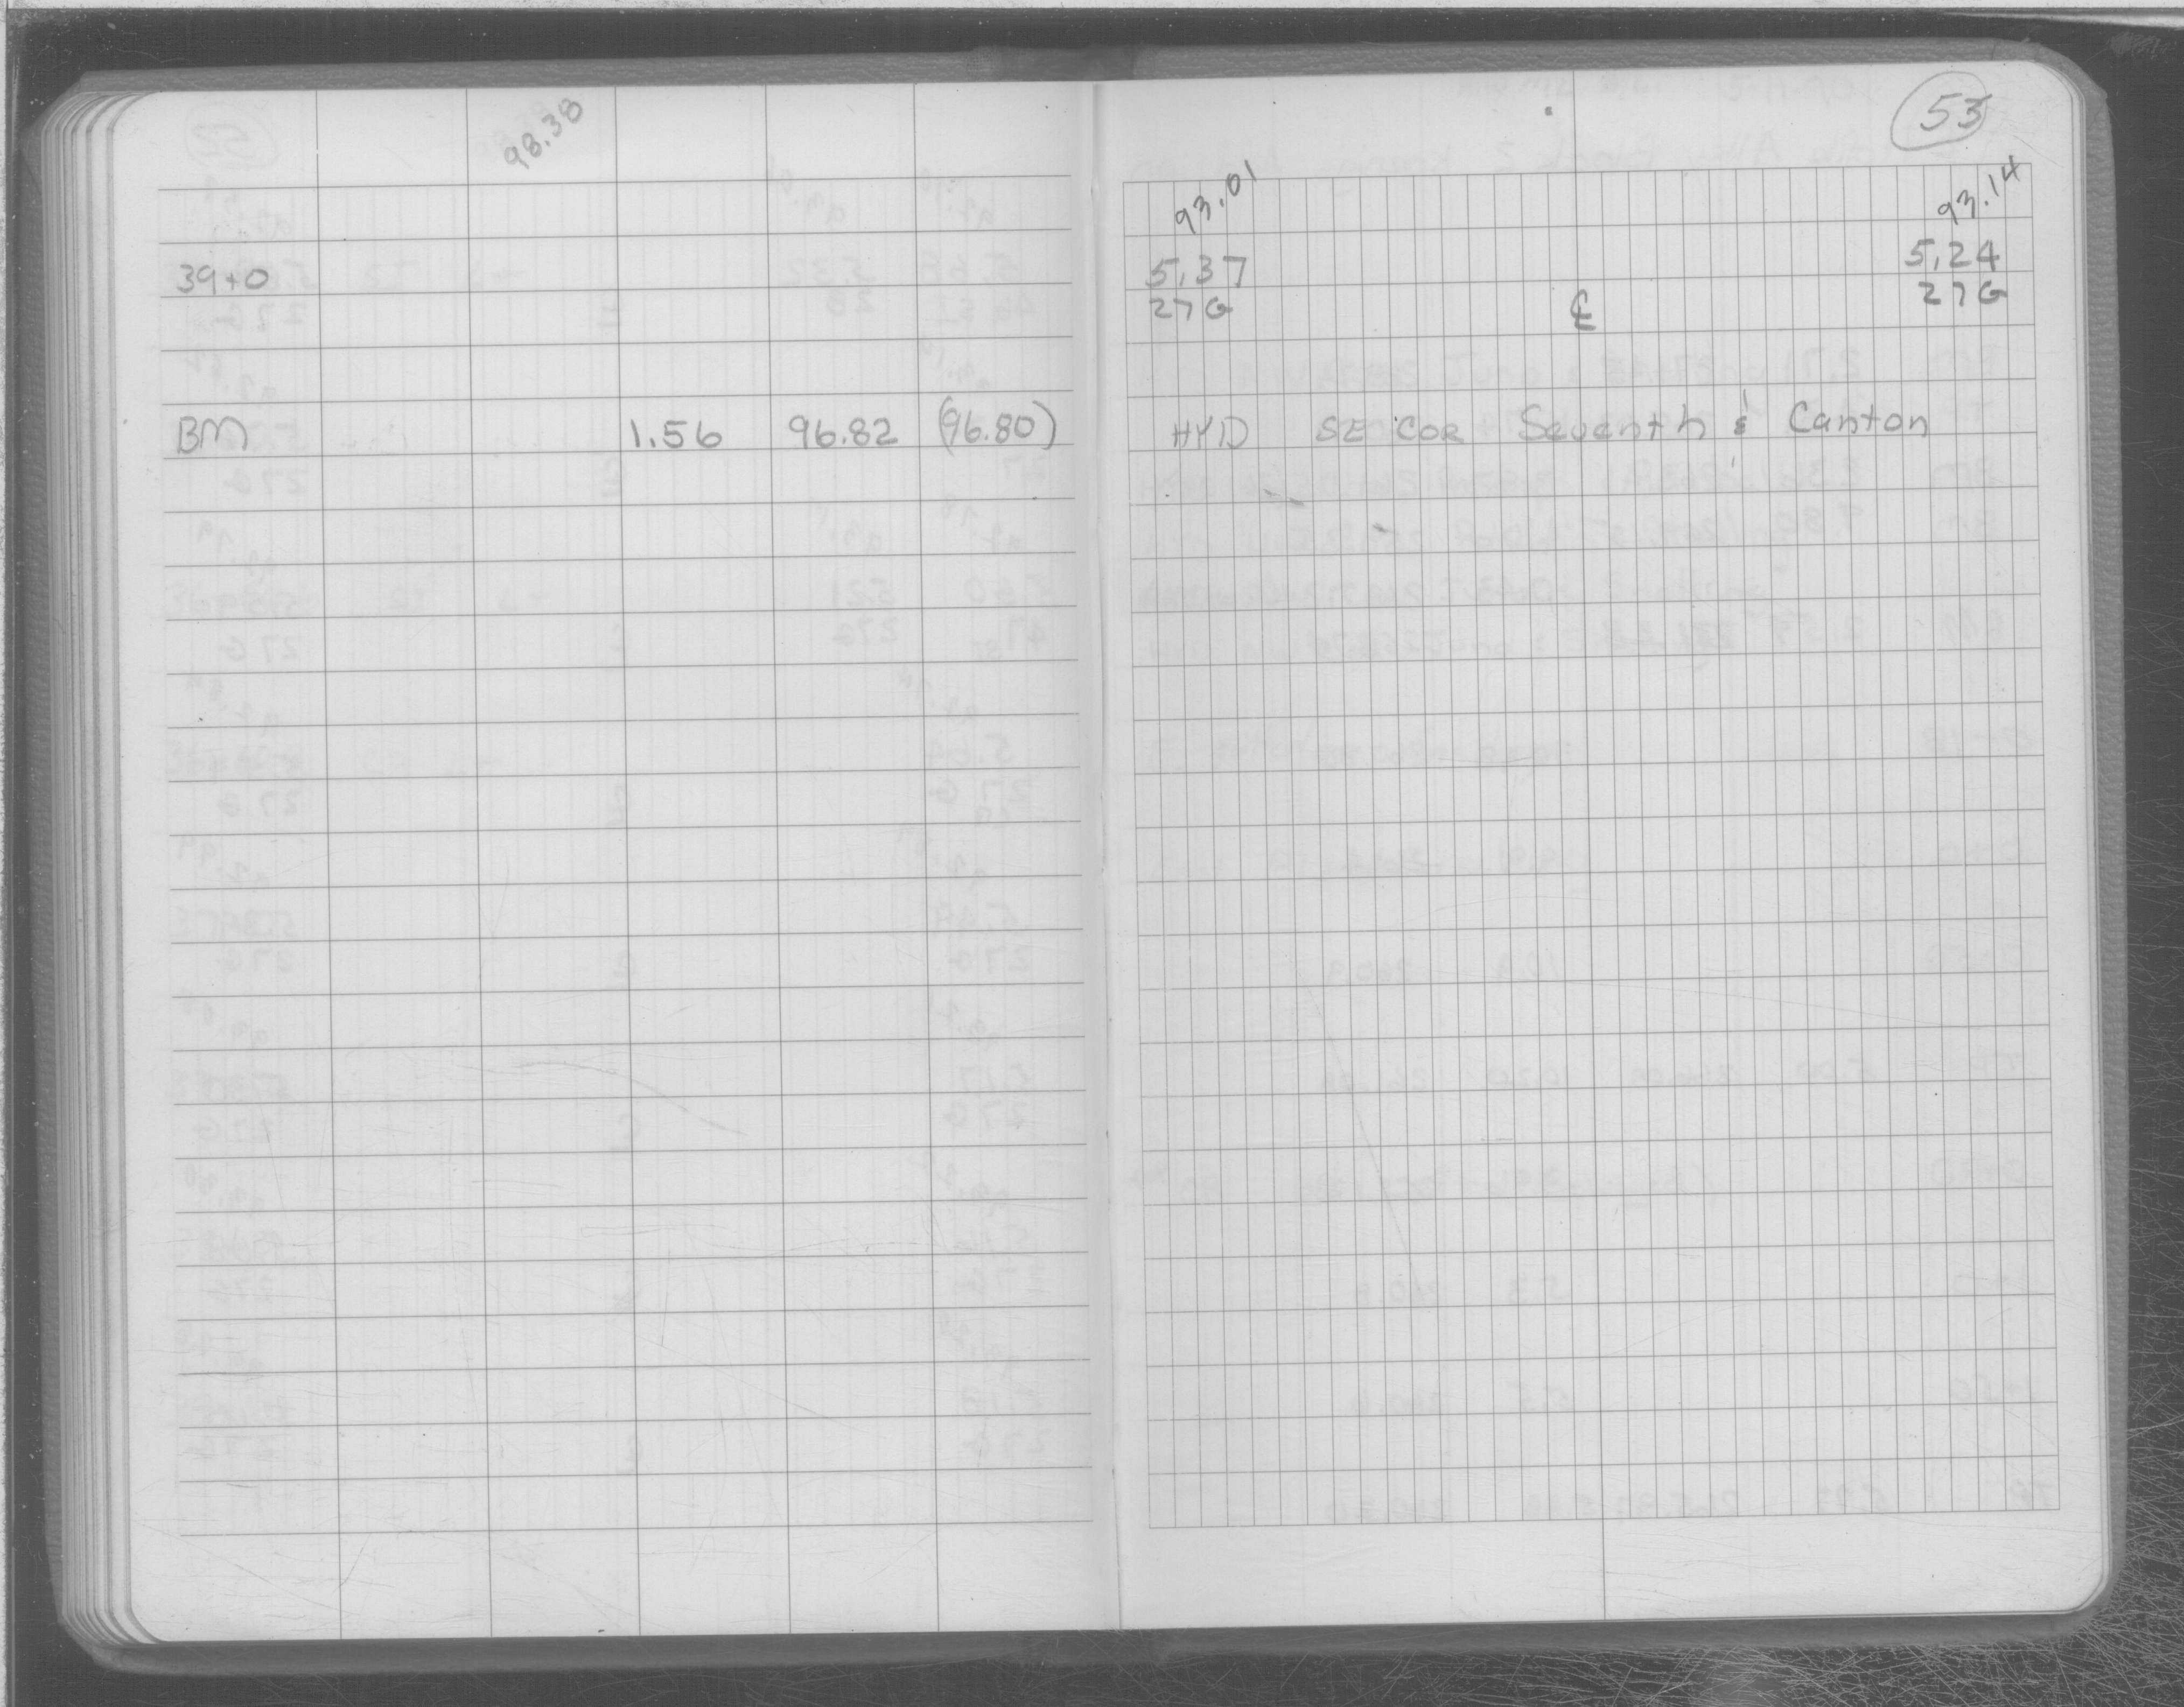 53
98.38
93.01 93.14
39+0 5.37 5.24
27G ℄ 27G
BM 1.56 96.82 (96.80) HYD SE COR Seventh & Canton